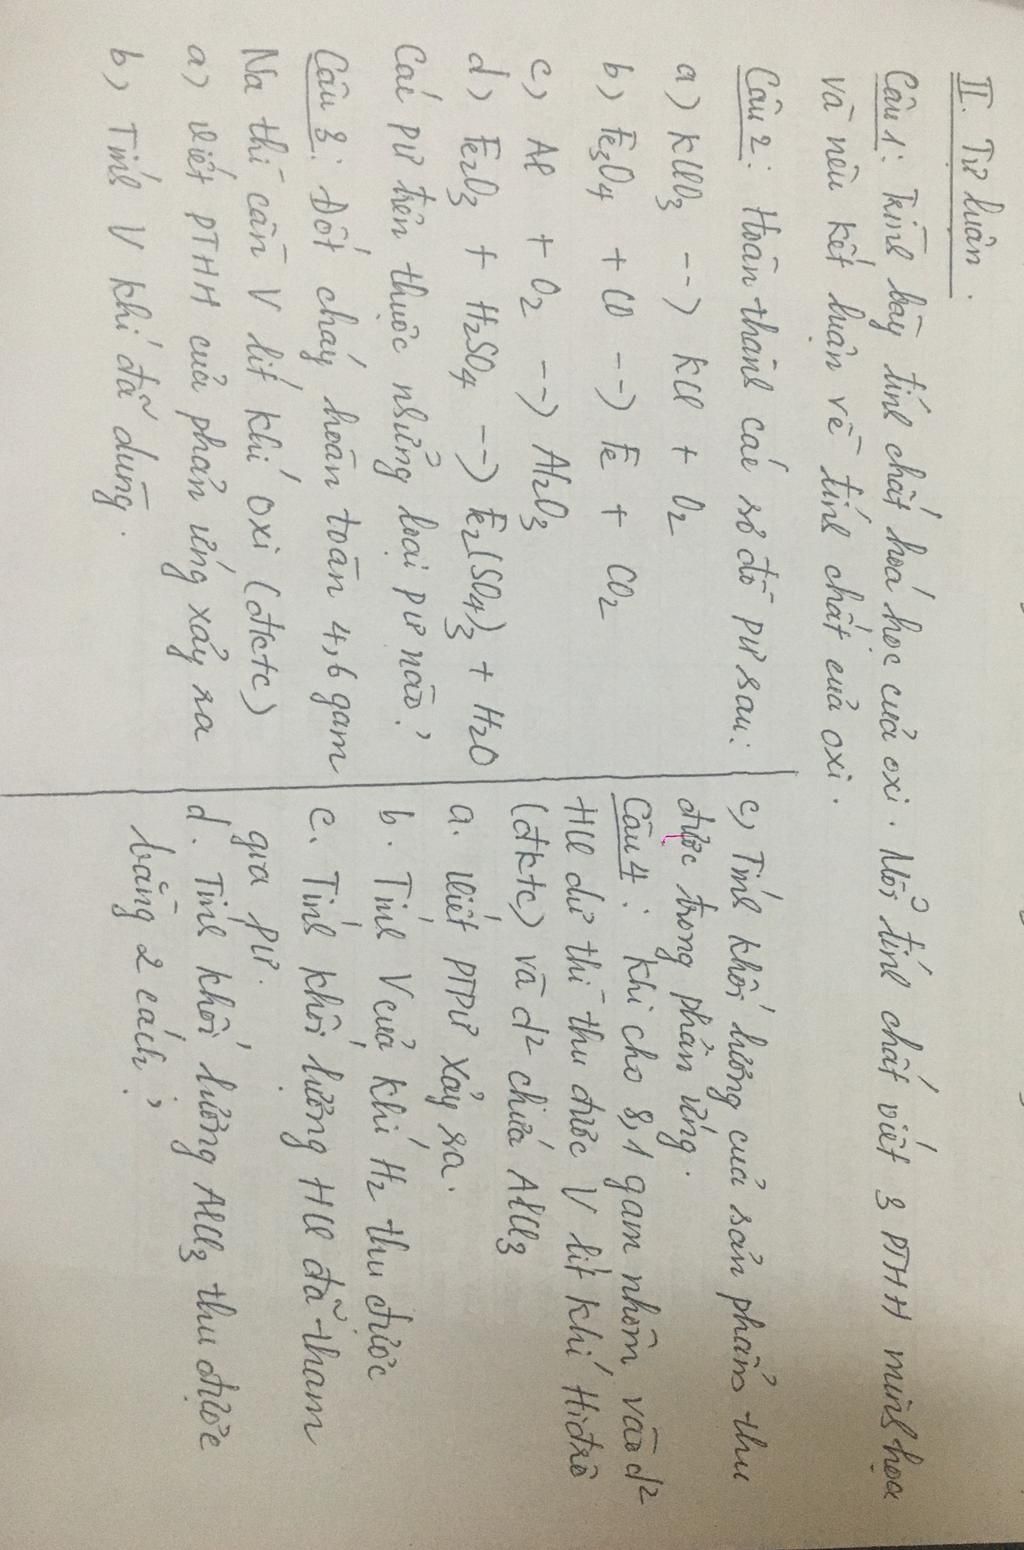 II. Tự luận.
Câu 1: Trình bày tính chất hoá học của oxi. Mỗi tính chất viết 3 PTHH minh họa
và nêu kết luận về tính chất của oxi.
Câu 2: Hoàn thành các sơ đồ pư sau:
a) KClO3 --> KCl + O2
b) Fe3O4 + CO --> Fe + CO2
c) Al + O2 --> Al2O3
d) Fe2O3 + H2SO4 --> Fe2(SO4)3 + H2O
Các pư trên thuộc những loại pư nào?
Câu 3: Đốt cháy hoàn toàn 4,6 gam
Na thì cần V lít khí oxi (đktc)
a) Viết PTHH của phản ứng xảy ra
b) Tính V khí đã dùng.
c) Tính khối lượng của sản phẩm thu
được trong phản ứng.
Câu 4: Khi cho 8,1 gam nhôm vào d²
HCl dư thì thu được V lít khí Hiđrô
(đktc) và d² chứa AlCl3
a. Viết PTPư xảy ra.
b. Tính V của khí H2 thu được
c. Tính khối lượng HCl đã tham
gia pư.
d. Tính khối lượng AlCl3 thu được
bằng 2 cách?